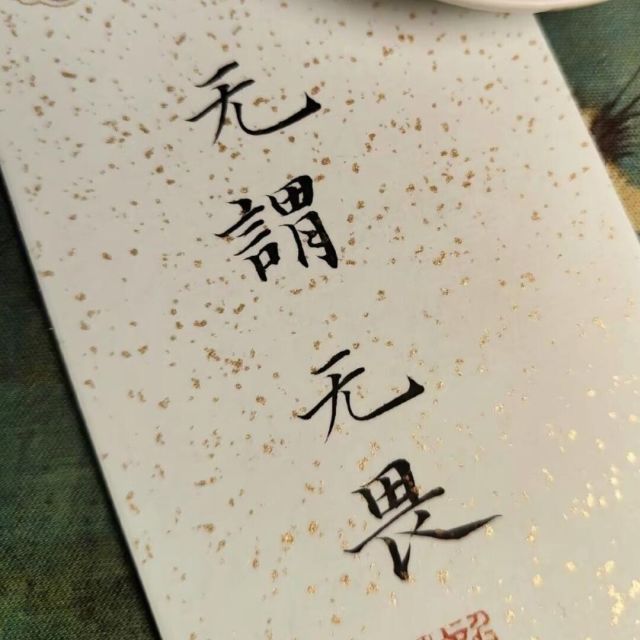 无謂无畏